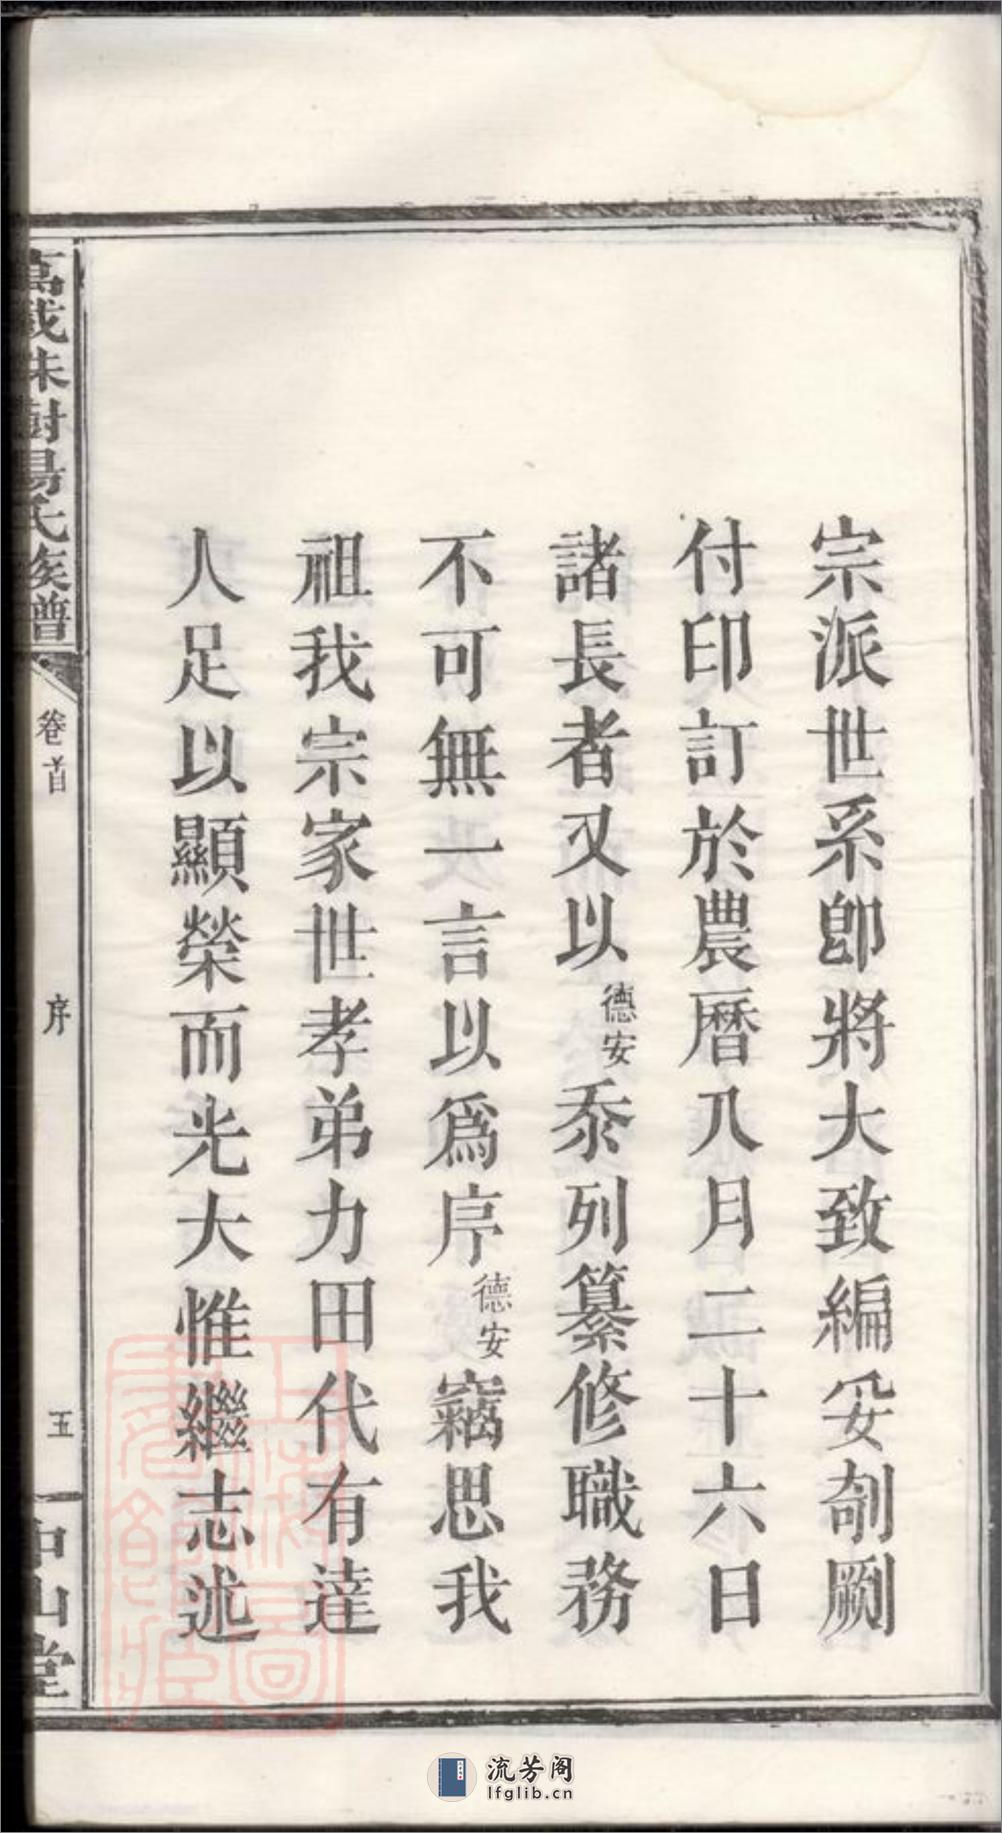 宗派世系卽將大致編妥剞劂
付印訂於農曆八月二十六日
諸長者又以德安忝列纂修職務
不可無一言以爲序德安竊思我
祖我宗家世孝弟力田代有達
人足以顯榮而光大惟繼志述
萬載株樹楊氏族譜
卷首
序
五
中山堂
流芳阁
lfglib.cn